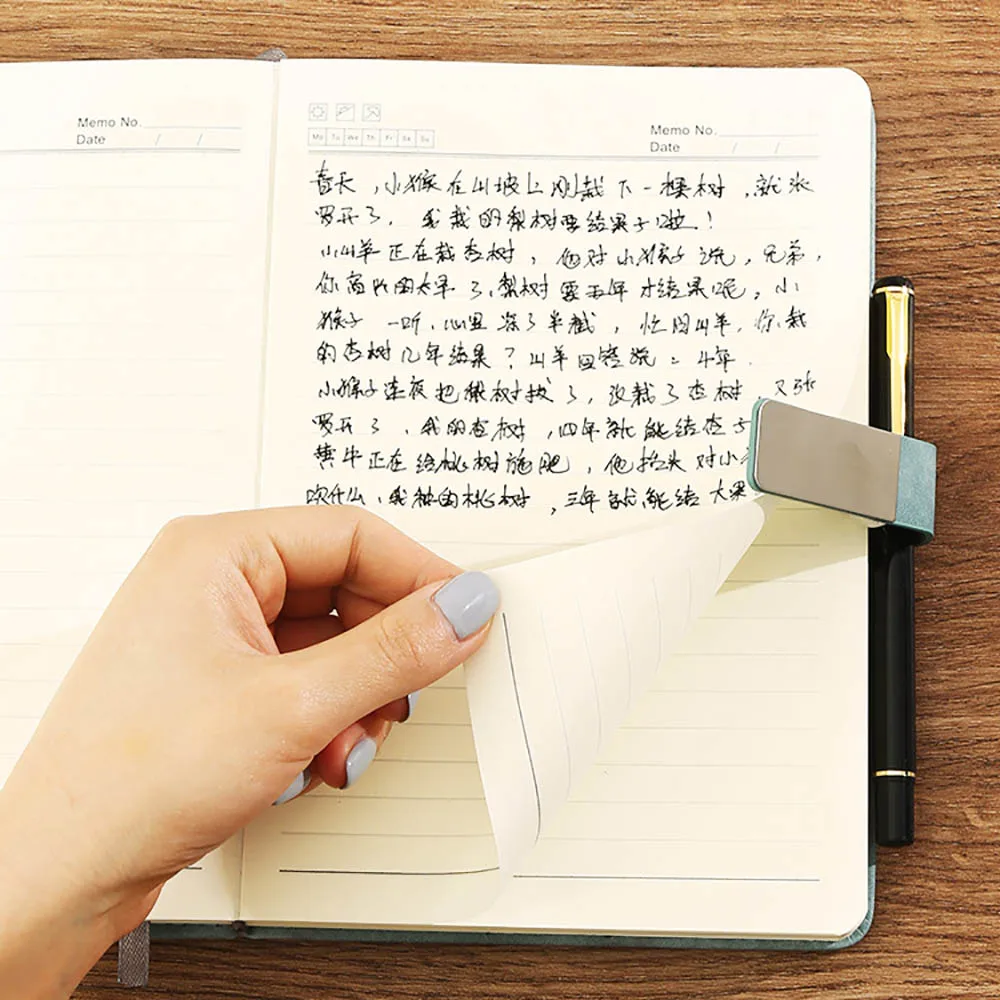 Memo No.
Date / /
Mo Tu We Th Fr Sa Su
Memo No.
Date / /
春天，小猴在山坡上刚栽下一棵树，就张
罗开了，我栽的梨树要结果子啦！
小山羊正在栽杏树，他对小猴子说，兄弟，
你高兴的太早了，梨树要五年才结果呢。小
猴子一听，心里凉了半截，忙问山羊，你栽
的杏树几年结果？山羊回答说：4年.
小猴子连夜把梨树拔了，改栽了杏树，又张
罗开了，我的杏树，四年就能结杏子
黄牛正在给桃树施肥，他抬头对小
吹什么，我种的桃树，三年就能结大果